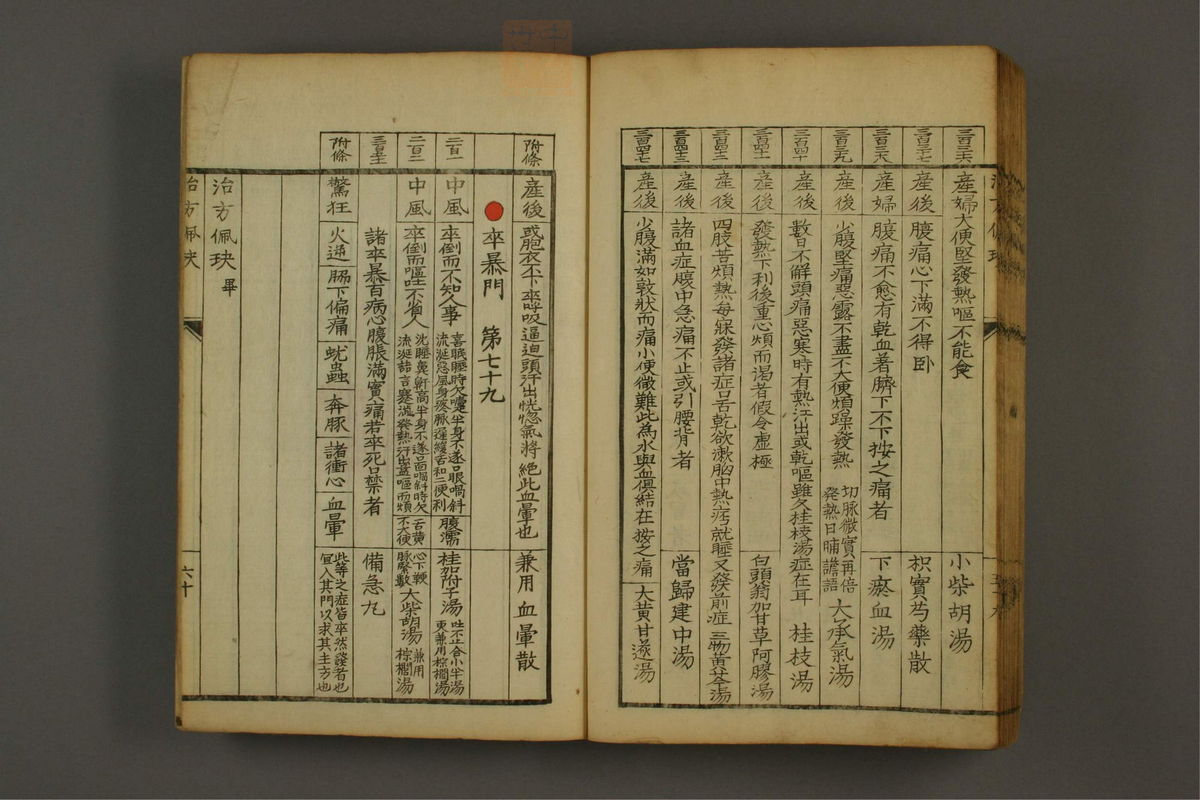 三百三十六 産婦 大便堅發熱嘔不能食 小柴胡湯
三百三十七 産後 腹痛心下滿不得卧 枳實芍藥散
三百三十八 産婦 腹痛不愈有乾血著臍下不下按之痛者 下瘀血湯
三百三十九 産後 少腹堅痛惡露不盡不大便煩躁發熱 切脉微實再倍發熱日晡譫語 大承氣湯
三百四十 産後 數日不解頭痛惡寒時有熱汗出或乾嘔雖久桂枝湯症在耳 桂枝湯
三百四十一 産後 發熱下利後重心煩而渴者假令虛極 白頭翁加甘草阿膠湯
産後 四肢苦煩熱每寐發諸症口舌乾欲漱胸中熱痞就睡又發前症 三物黃芩湯
産後 諸血症腹中急痛不止或引腰背者 當歸建中湯
産後 少腹滿如敦狀而痛小便微難此為水與血俱結在按之痛 大黃甘遂湯
附條 産後 或胞衣不下卒呼吸逼迫頭汗出恍惚氣將絕此血暈也 兼用血暈散
卒暴門 第七十九
二百一 中風 卒倒而不知人事 喜眠睡時欠嚏半身不遂口眼喎斜流涎惡風身疼脉遲緩舌和二便利 腹濡 桂加附子湯 吐不止合小半湯更兼用棕櫚湯
二百二 中風 卒倒而嘔吐不省人 沈睡鼻鼾高半身不遂口面喎斜時欠流涎語言蹇澁發熱汗出益嘔而煩 舌黃不大便 心下鞕脉緊數 大柴胡湯 兼用棕櫚湯
諸卒暴百病心腹脹滿實痛若卒死口禁者 備急丸
附條 驚狂 火逼 脇下偏痛 蚘蟲 奔豚 諸衝心 血暈 此等之症皆卒然發者也宜入其門以求其主方也
治方佩玦 畢
治方佩玦 六十